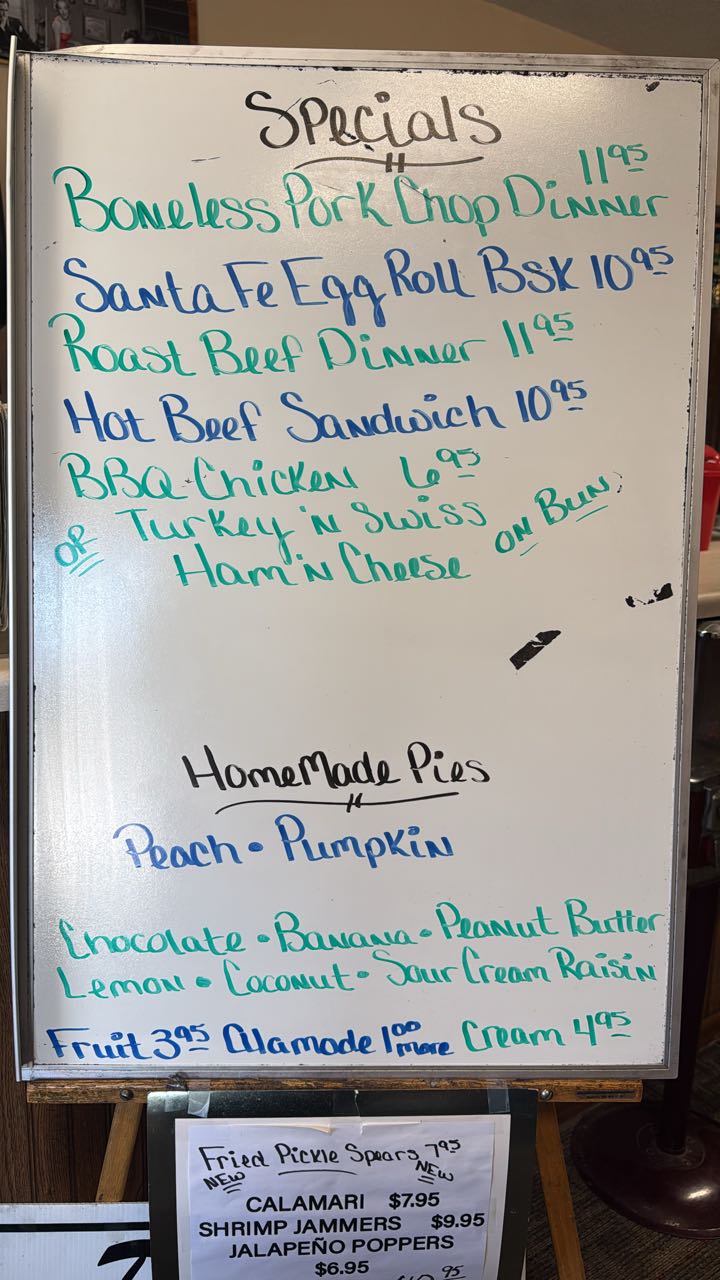 Specials
11 95
Boneless Pork Chop Dinner
Santa Fe Egg Roll Bsk 10 95
Roast Beef Dinner 11 95
Hot Beef Sandwich 10 95
BBQ Chicken 6 95
or Turkey 'n Swiss on Bun
Ham 'n Cheese
HomeMade Pies
Peach • Pumpkin
Chocolate • Banana • Peanut Butter
Lemon • Coconut • Sour Cream Raisin
Fruit 3 95 Alamode 1 00 more Cream 4 95
Fried Pickle Spears 7 95
NEW NEW
CALAMARI $7.95
SHRIMP JAMMERS $9.95
JALAPEÑO POPPERS
$6.95
95